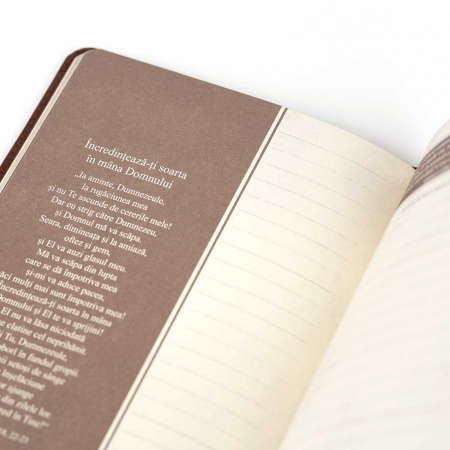 Încredințează-ți soarta
în mâna Domnului
„Ia aminte, Dumnezeule,
la rugăciunea mea
și nu Te ascunde de cererile mele!
Dar eu strig către Dumnezeu,
și Domnul mă va scăpa.
Seara, dimineața și la amiază,
oftez și gem,
și El va auzi glasul meu.
Mă va scăpa din lupta
care se dă împotriva mea
și-mi va aduce pacea,
căci mulți mai sunt împotriva mea!
Încredințează-ți soarta în mâna
Domnului și El te va sprijini!
El nu va lăsa niciodată
se clatine cel neprihănit.
Și Tu, Dumnezeule,
coborî în fundul gropii.
setoși de sânge
înșelăciune
ajunge
din zilele lor.
cred în Tine!”
22-23